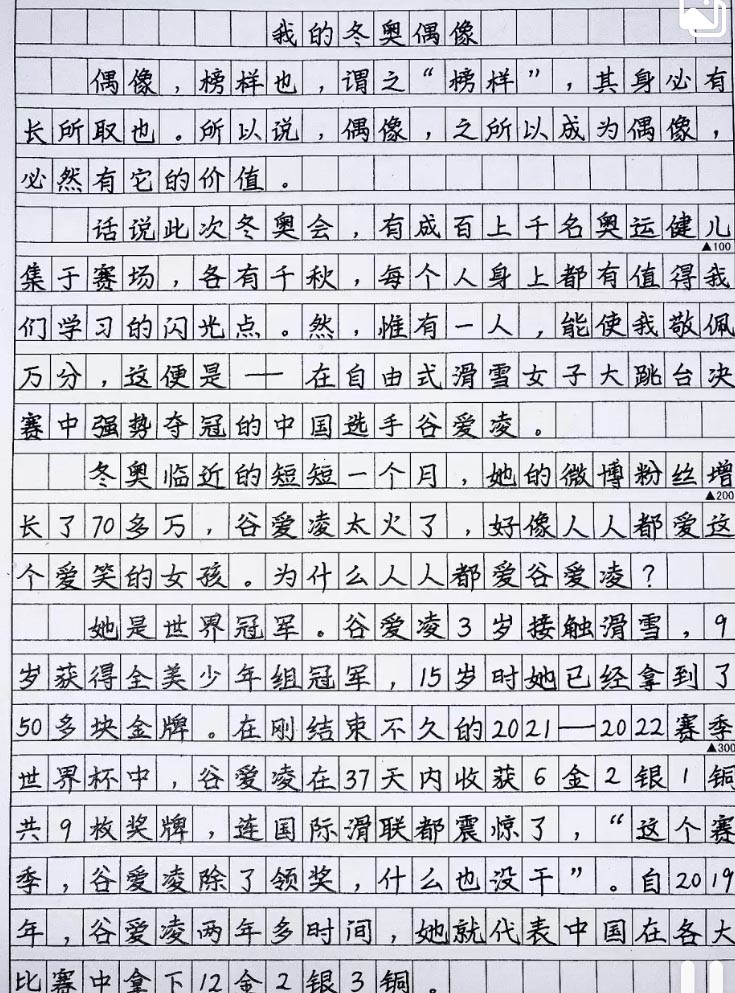 我的冬奥偶像
偶像，榜样也，谓之“榜样”，其身必有
长所取也。所以说，偶像，之所以成为偶像，
必然有它的价值。
话说此次冬奥会，有成百上千名奥运健儿
▲100
集于赛场，各有千秋，每个人身上都有值得我
们学习的闪光点。然，惟有一人，能使我敬佩
万分，这便是——在自由式滑雪女子大跳台决
赛中强势夺冠的中国选手谷爱凌。
冬奥临近的短短一个月，她的微博粉丝增
▲200
长了70多万，谷爱凌太火了，好像人人都爱这
个爱笑的女孩。为什么人人都爱谷爱凌？
她是世界冠军。谷爱凌3岁接触滑雪，9
岁获得全美少年组冠军，15岁时她已经拿到了
50多块金牌。在刚结束不久的2021—2022赛季
▲300
世界杯中，谷爱凌在37天内收获6金2银1铜
共9枚奖牌，连国际滑联都震惊了，“这个赛
季，谷爱凌除了领奖，什么也没干”。自2019
年，谷爱凌两年多时间，她就代表中国在各大
比赛中拿下12金2银3铜。